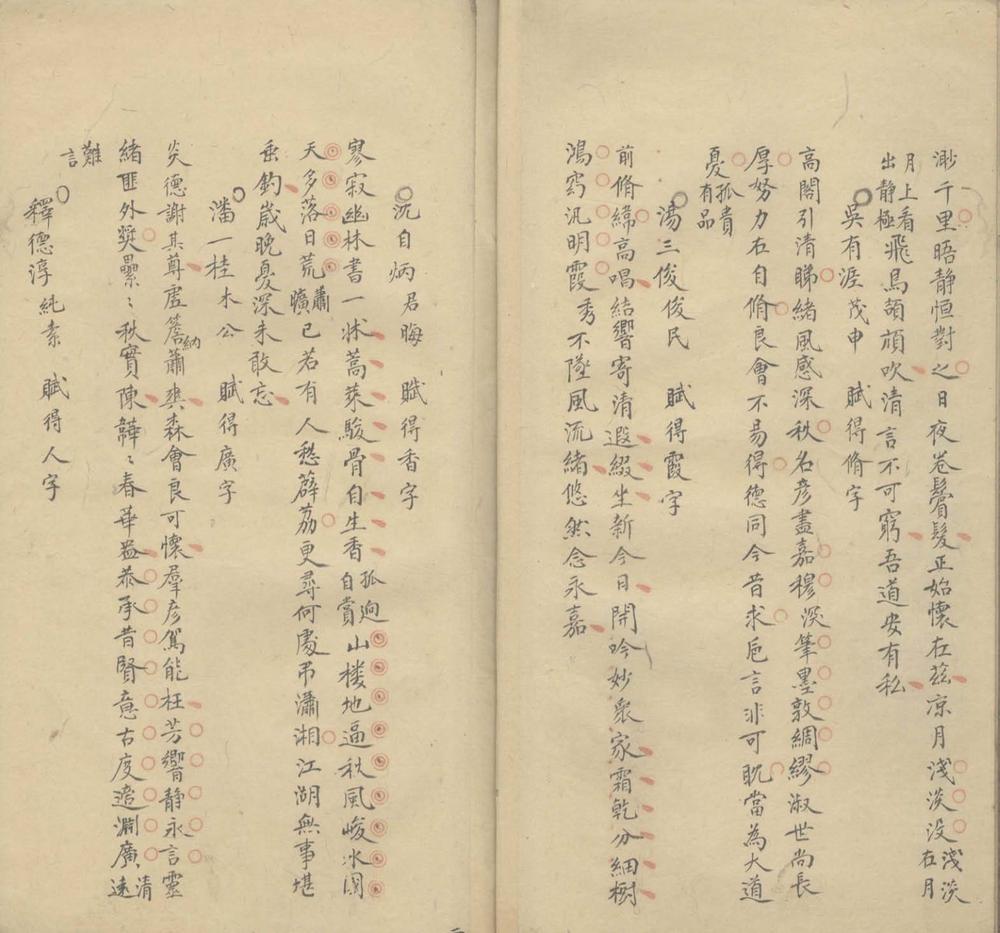 渺千里晤静恒對之日夜卷鬢髮正始懷在茲凉月淺淡没淺淡在月
月上看出静極飛鳥頡頏吹清言不可窮吾道安有私
吳有涯茂申 賦得脩字
高閣引清睇緒風感深秋名彦盡嘉穆淡筆墨敦綢繆淑世尚長
厚努力右自脩良會不易得德同今昔求卮言非可耽當為大道
憂孤貴有品
湯三俊俊民 賦得霞字
前脩緯高唱結響寄清遐綴坐新今日開吟妙衆家霜乾分細樹
鴻窈汎明霞秀不墜風流緒悠然念永嘉
沈自炳君晦 賦得香字
寥寂幽林書一牀蒿萊駿骨自生香孤迥自賞山楼地逼秋風峻水國
天多落日荒蕭曠已若有人愁薜荔更尋何處吊瀟湘江湖無事堪
垂釣歲晚憂深未敢忘
潘一桂木公 賦得廣字
炎德謝其尊虚簷納蕭爽森會良可懷羣彦駕能枉芳響静永言靈
緒匪外奨纍〻秋實陳韡〻春華益恭承昔賢意古度追淵廣清遠
難言
釋德淳純素 賦得人字